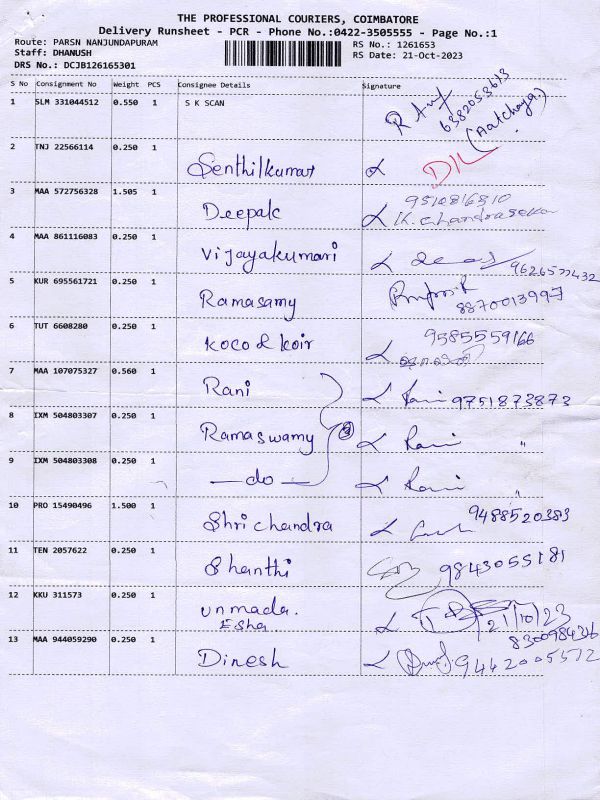 THE PROFESSIONAL COURIERS, COIMBATORE
Delivery Runsheet - PCR - Phone No.:0422-3505555 - Page No.:1
Route: PARSN NANJUNDAPURAM RS No.: 1261653
Staff: DHANUSH RS Date: 21-Oct-2023
DRS No.: DCJB126165301
S No Consignment No Weight PCS Consignee Details Signature
1 SLM 331044512 0.550 1 S K SCAN
6382053613
(Aatchaya.)
2 TNJ 22566114 0.250 1 Senthilkumar
3 MAA 572756328 1.505 1 Deepak
K. Chandrasekar
4 MAA 861116083 0.250 1 Vijayakumari
5 KUR 695561721 0.250 1 Ramasamy
8870013997
6 TUT 6608280 0.250 1 Koco & Koir 9585559166
7 MAA 107075327 0.560 1 Rani Rani 9751873873
8 IXM 504803307 0.250 1 Ramaswamy Rani "
9 IXM 504803308 0.250 1 —do— Rani "
10 PRO 15490496 1.500 1 Shri chandra 9488520383
11 TEN 2057622 0.250 1 Shanthi 9843055181
12 KKU 311573 0.250 1 unmada. 21/10/23
Esha
13 MAA 944059290 0.250 1 Dinesh 9442005572